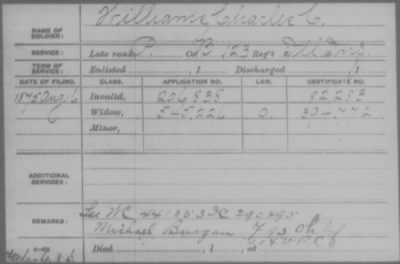 NAME OF SOLDIER: Williams Charles C.
SERVICE: Late rank P. Co. B, 123 Reg't Ill Inf.
TERM OF SERVICE: Enlisted , 1 Discharged , 1
DATE OF FILING. CLASS. APPLICATION NO. LAW. CERTIFICATE NO.
1875 Aug. 6 Invalid, 206,838. 82283
Widow, 545,226 O. 394,772
Minor,
ADDITIONAL SERVICES:
REMARKS: See WC 441853 290495
Michael Burgan F 95 Oh
Died , 1 , at